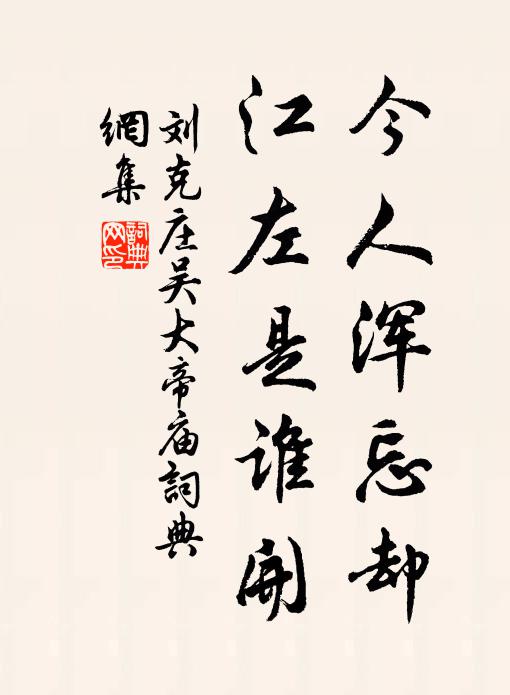 今人浑忘却
江左是谁開
刘克庄吴大帝庙詞典
網集
詞典
网印